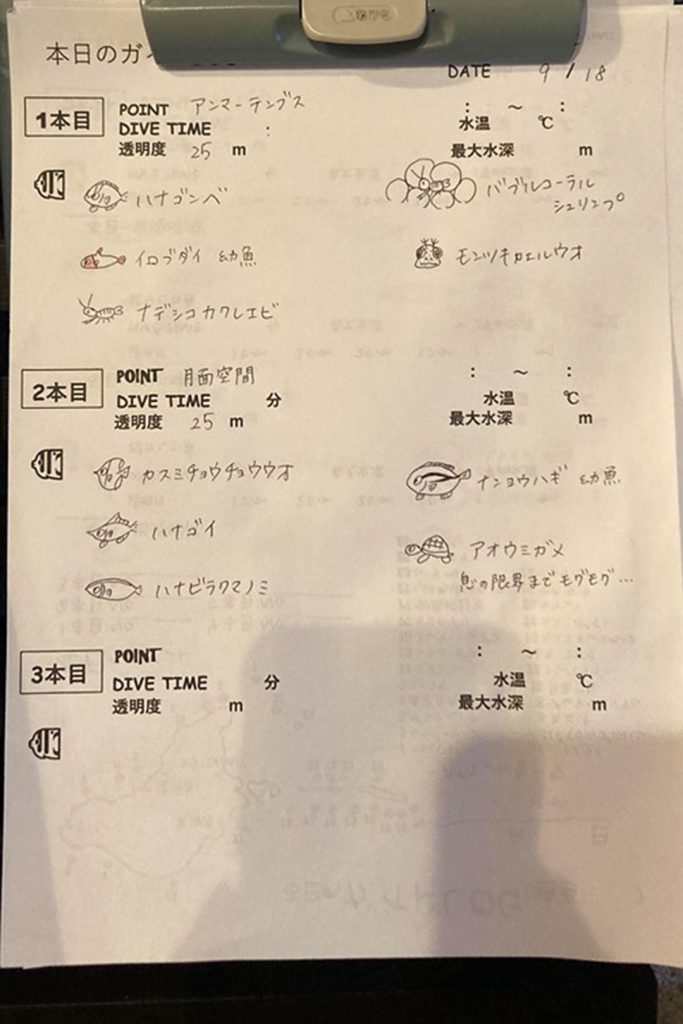 本日のガイ
DATE 9/18
1本目
POINT アンマーテンブス
DIVE TIME :
: ～ :
水温 ℃
透明度 25 m
最大水深 m
ハナゴンベ
バブルコーラル
シュリンプ
イロブダイ 幼魚
モンツキカエルウオ
ナデシコカクレエビ
2本目
POINT 月面空間
: ～ :
DIVE TIME 分
水温 ℃
透明度 25 m
最大水深 m
カスミチョウチョウウオ
ナンヨウハギ 幼魚
ハナゴイ
アオウミガメ
息の限界までモグモグ…
ハナビラクマノミ
3本目
POINT
: ～ :
DIVE TIME 分
水温 ℃
透明度 m
最大水深 m